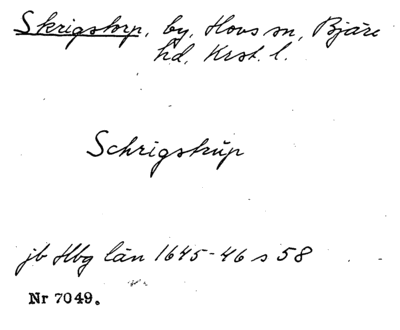 Skrigstorp, by, Hovs sn, Bjäre
hd, Krst. l.
Schrigstrüp
jb Hbg län 1645-46 s 58
Nr 7049.